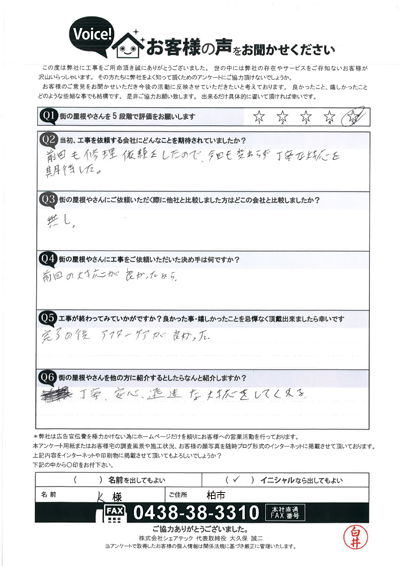 Voice!
お客様の声をお聞かせください
この度は弊社に工事をご用命頂き誠にありがとうございました。世の中には弊社の存在やサービスをご存知ないお客様が
沢山いらっしゃいます。その方たちに弊社をよく知って頂くためのアンケートにご協力頂けないでしょうか。
お客様のご意見をお聞かせいただき今後の活動に反映させていただきたいと考えております。良かったこと、嬉しかったこと
どのような些細な事でも結構です。是非ご協力お願い致します。出来るだけ具体的に書いて頂ければ幸いです。
Q1 街の屋根やさんを5段階で評価をお願いします
☆ ☆ ☆ ☆ ☆
Q2 当初、工事を依頼する会社にどんなことを期待されていましたか?
前回も修理依頼をしたので、今回も変わらず丁寧な対応を
期待した。
Q3 街の屋根やさんにご依頼いただく際に他社と比較しました方はどこの会社と比較しましたか?
無し。
Q4 街の屋根やさんに工事をご依頼いただいた決め手は何ですか?
前回の対応が良かったから
Q5 工事が終わってみていかがですか?良かった事・嬉しかったことを忌憚なく頂戴出来ましたら幸いです
完了の後 アフターケアが良かった
Q6 街の屋根やさんを他の方に紹介するとしたらなんと紹介しますか?
丁寧、安心、迅速な対応をしてくれる
*弊社は広告宣伝費を極力かけない為にホームページだけを頼りにお客様への営業活動を行っております。
本アンケート用紙またはお客様宅の調査風景や施工状況、お客様の顔写真を随時ブログ形式のインターネットに掲載させて頂いております。
上記内容をインターネットや印刷物に掲載させて頂いてもよろしいでしょうか?
下記の中から〇印をお付下さい。
( ) 名前を出してもよい (✓) イニシャルなら出してもよい
名前 K 様 ご住所 柏市
FAX 0438-38-3310 本社直通 FAX番号
ご協力ありがとうございました。
株式会社シェアテック 代表取締役 大久保 誠二
当アンケートで取得したお客様の個人情報は関係法規に基づき厳正に管理いたします。
白井